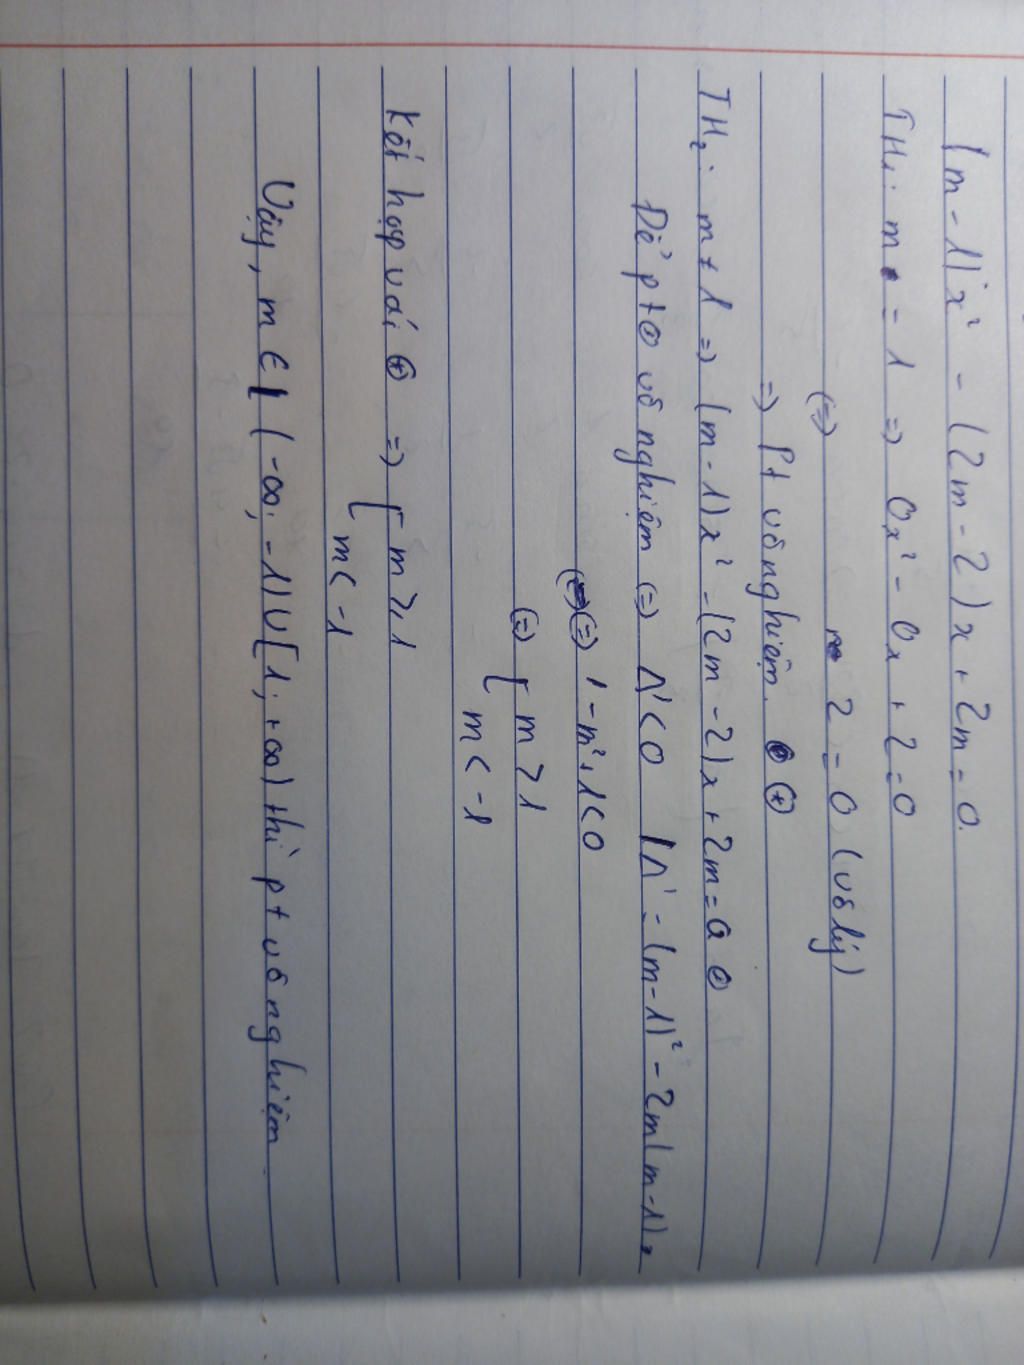 (m-1)x² - (2m-2)x + 2m = 0.
TH₁: m = 1 => 0x² - 0x + 2 = 0
(=) 2 = 0 (vô lý)
=> Pt vô nghiệm. ⊕
TH₂: m ≠ 1 => (m-1)x² - (2m-2)x + 2m = 0
Để pt vô nghiệm (=) Δ' < 0 | Δ' = (m-1)² - 2m(m-1)
(=) -m² + 1 < 0
(=) [ m > 1
m < -1
Kết hợp với ⊕ => [ m ⩾ 1
m < -1
Vậy, m ∈ (-∞; -1) ∪ [1; +∞) thì pt vô nghiệm.